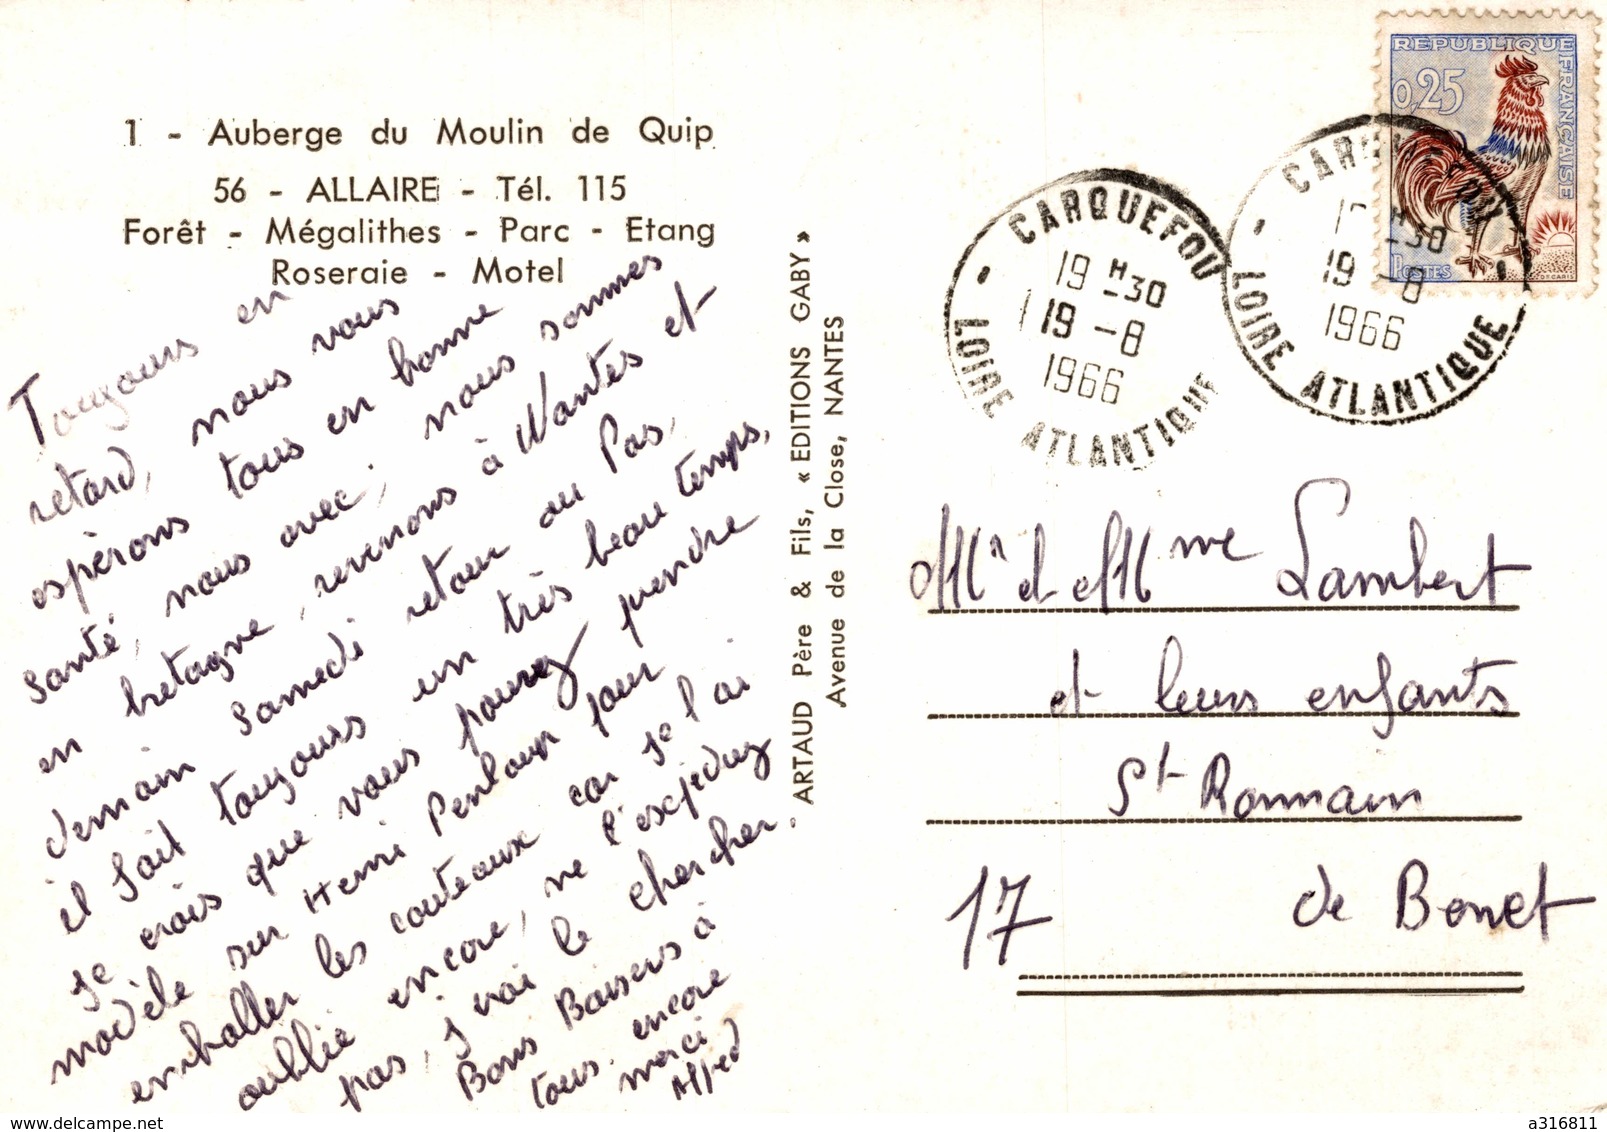 1 - Auberge du Moulin de Quip
56 - ALLAIRE - Tél. 115
Forêt - Mégalithes - Parc - Etang
Roseraie - Motel
Toujours en
retard, nous vous
espèrons tous en bonne
santé, nous avec, nous sommes
en bretagne, revenons à Nantes et
demain Samedi retour au Pas,
il fait toujours un très beau temps,
je crois que vous pouvez prendre
modèle sur Henri Penloup pour
emballer les couteaux car je l ai
oublié encore, ne l'expédiez
pas, j'irai le chercher.
Bons Baisers à
tous. encore
merci
Alfred
ARTAUD Père & Fils, « EDITIONS GABY »
Avenue de la Close, NANTES
REPUBLIQUE FRANÇAISE
0,25
POSTES
CARQUEFOU
19 H 30
19 - 8
1966
LOIRE ATLANTIQUE
CARQUEFOU
H 30
19 - 8
1966
LOIRE ATLANTIQUE
Mr et Mme Lambert
et leurs enfants
St Romain
17 de Benet
a316811
delcampe.net